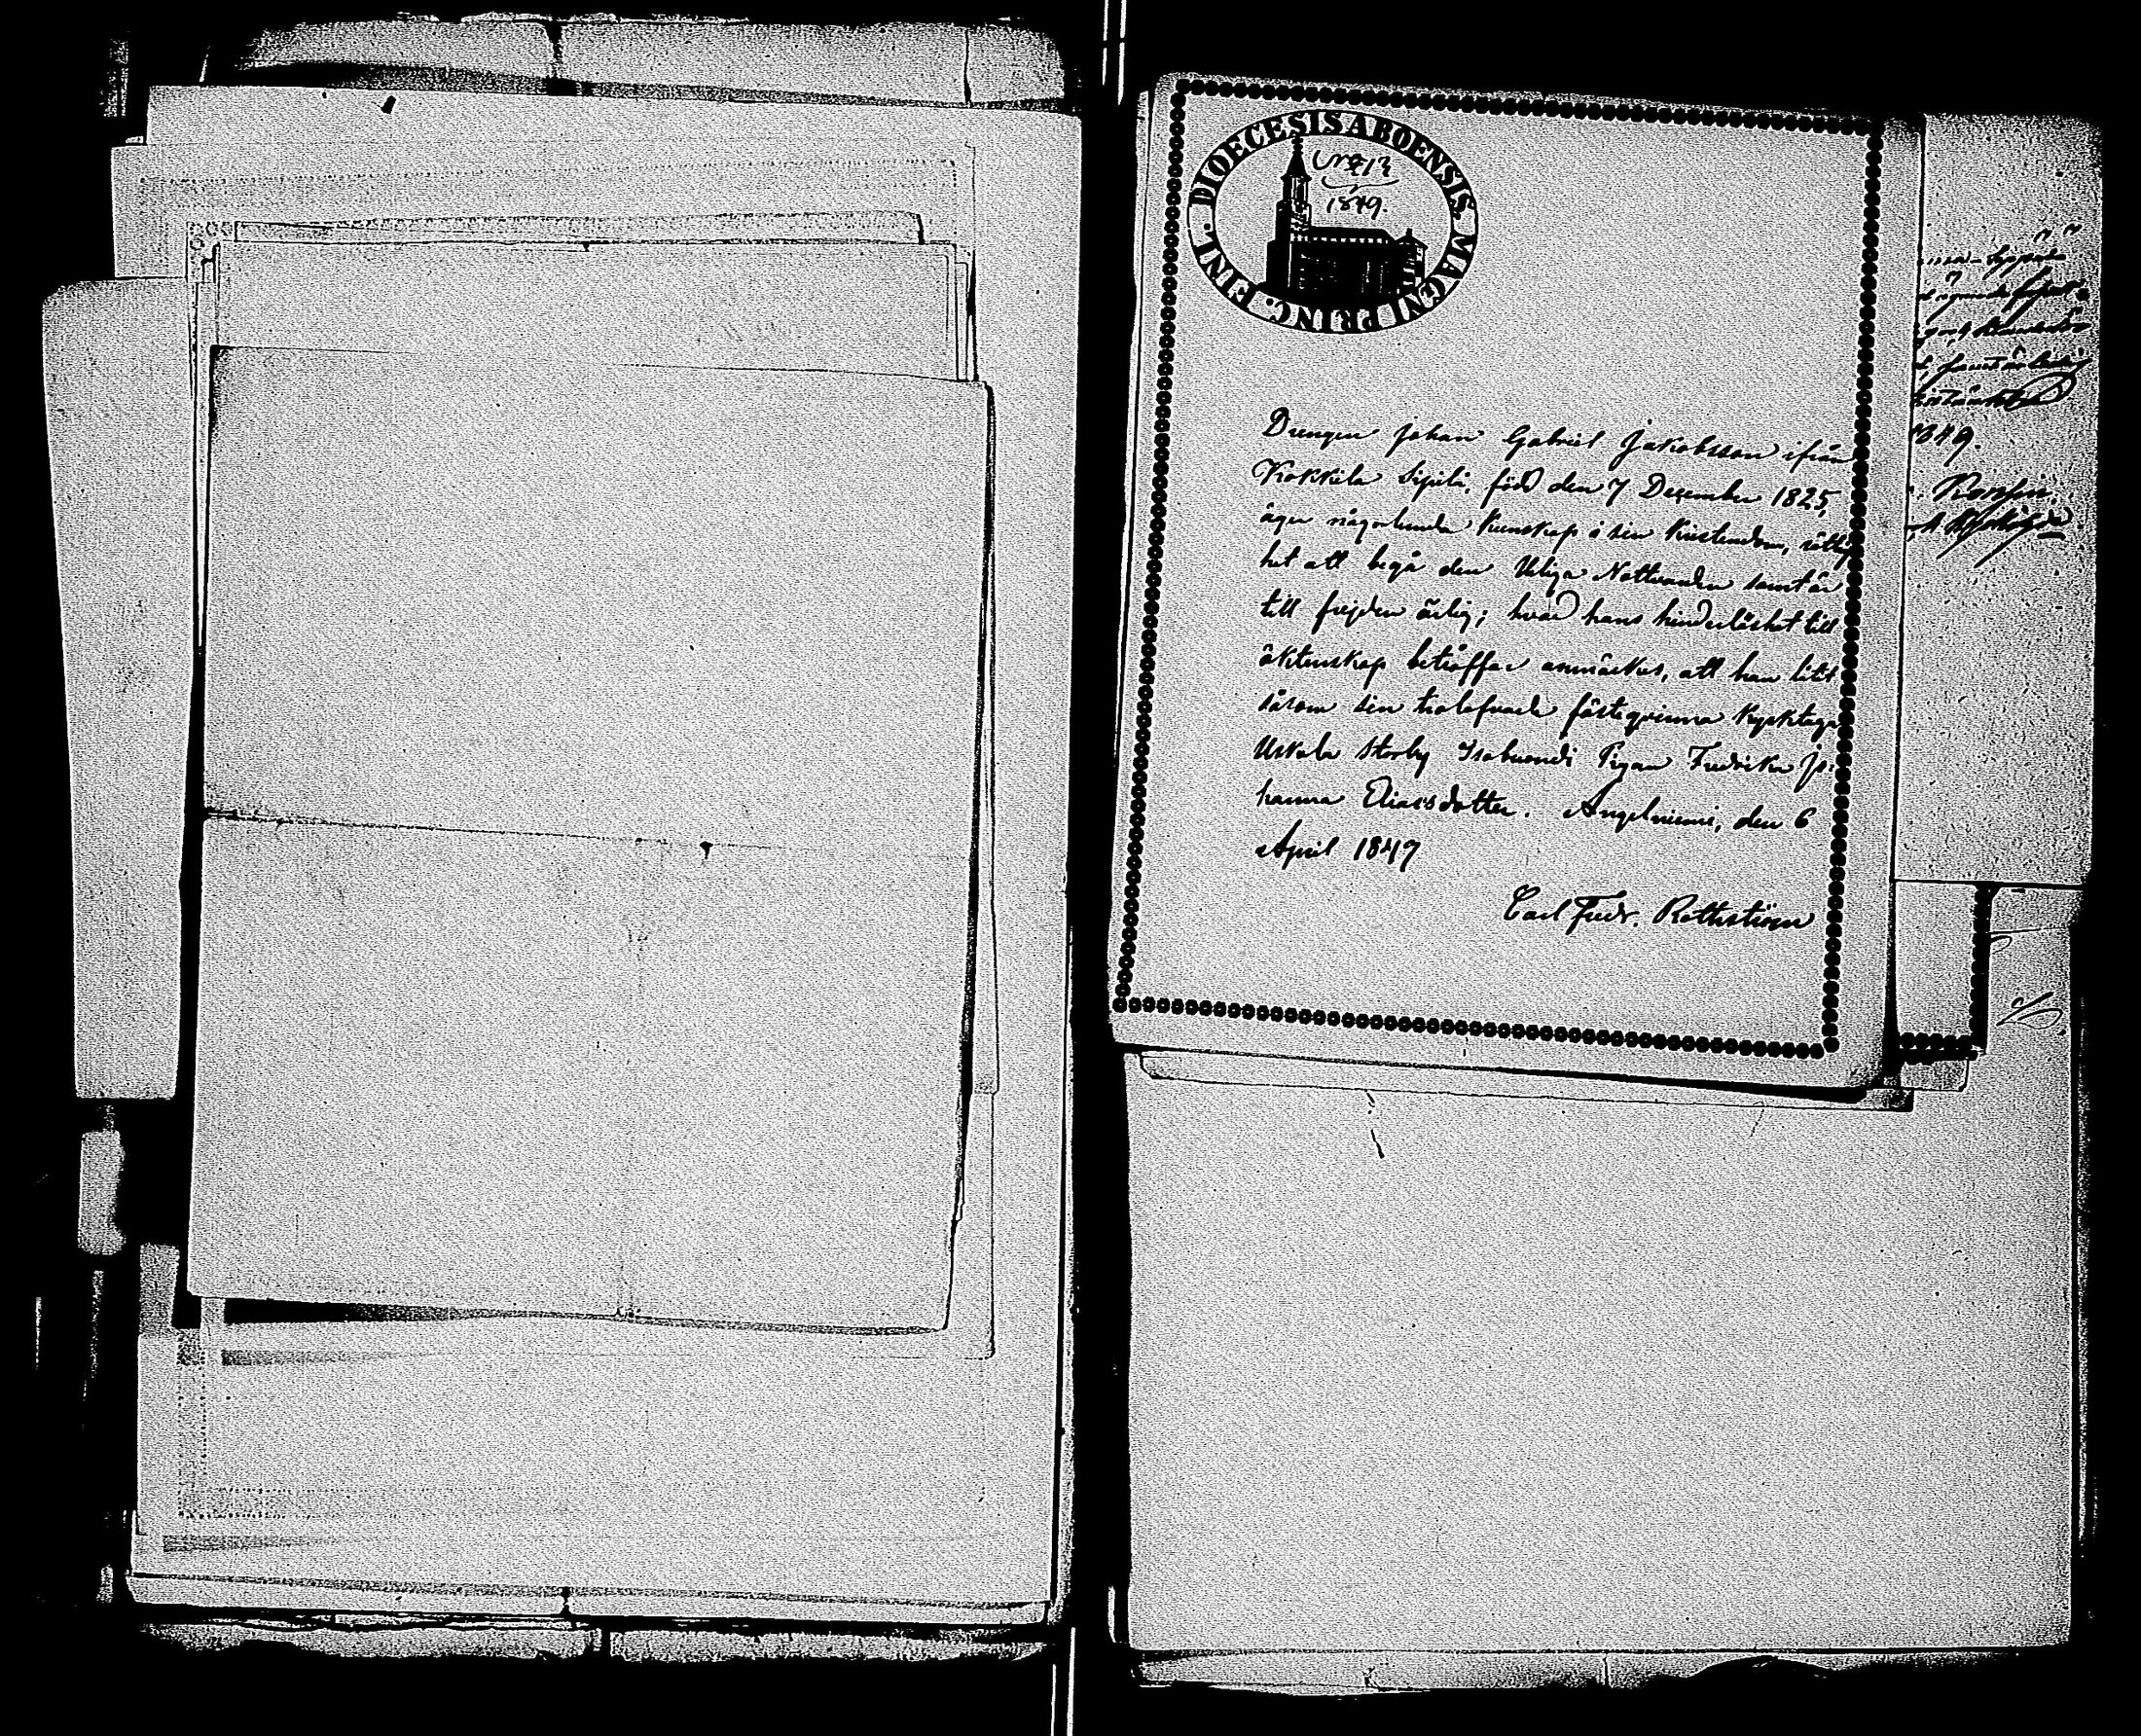 DIOECESIS ABOENSIS. MAGNI PRINC. FINL.
1849.
Drengen Johan Gabriel Jakobsson ifrån
Kokkila Sipilä, född den 7 December 1825,
äger någorlunda Kunskap i sin Kristendom, rättig
het att begå den Heliga Nattvarden samt är
till frejden ärlig; hvad hans hinderlöshet till
äktenskap beträffar anmärkes, att han låtit
såsom sin trolofvade fästeqvinna kyrktaga
Uskela Storby Pigan Fredrika Jo-
hanna Eliasdotter. Angelniemi, den 6
April 1847
Carl Fredr. Rothström
1849.